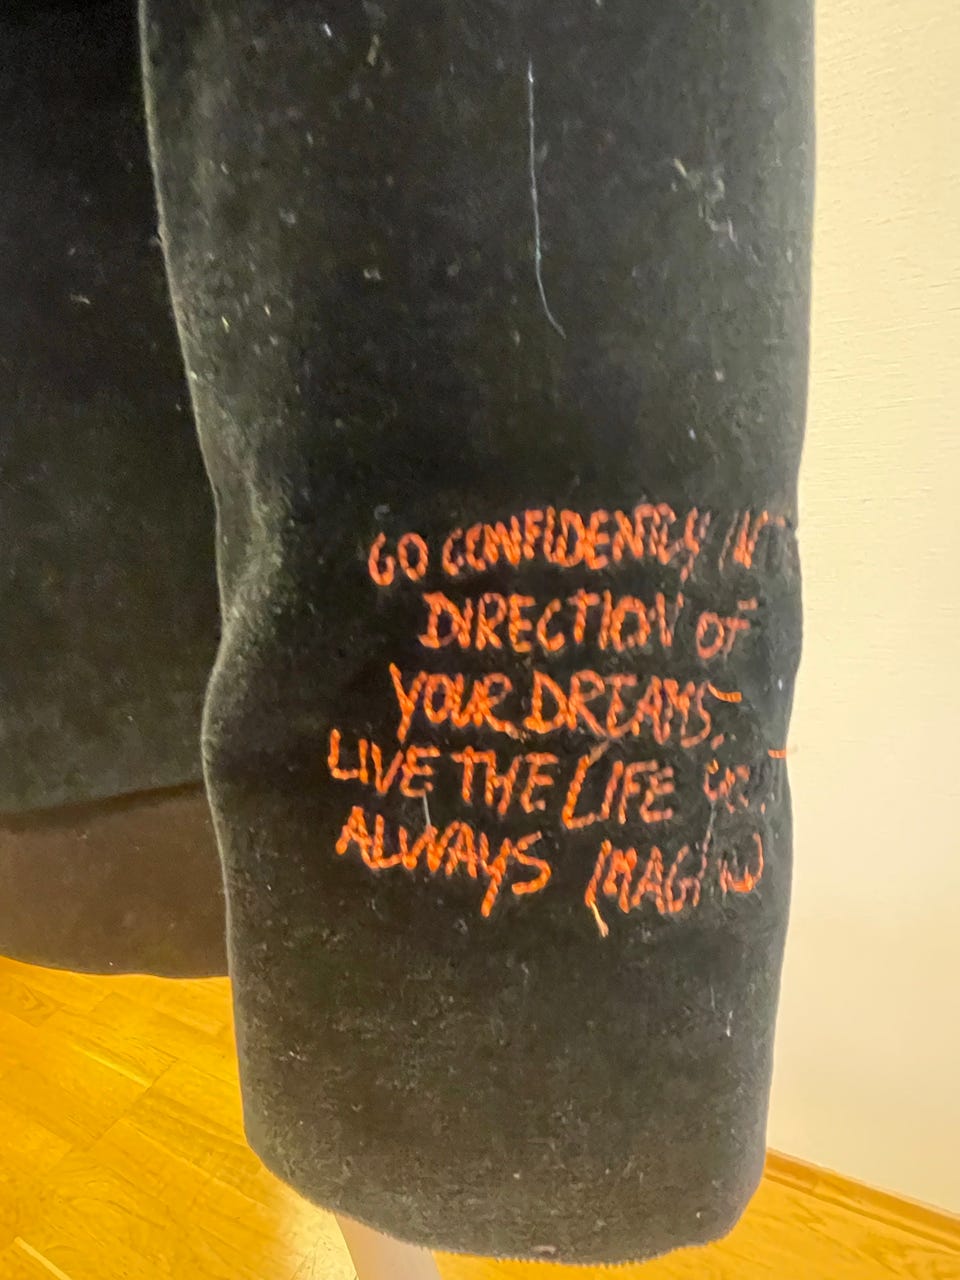 GO CONFIDENTLY IN
DIRECTION OF
YOUR DREAMS.
LIVE THE LIFE
ALWAYS